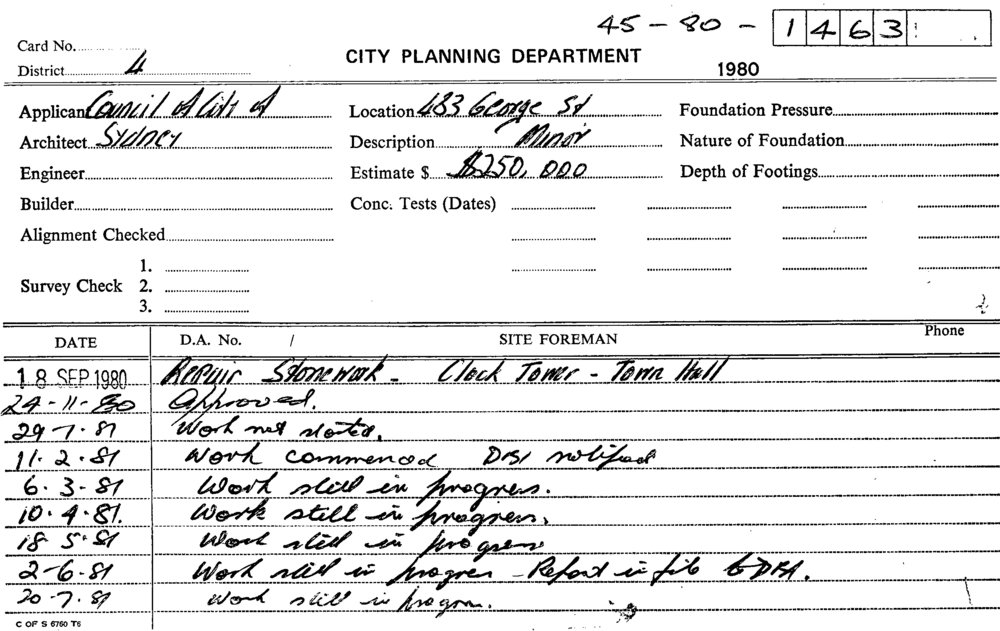 45-80-1463
Card No.
District 4
CITY PLANNING DEPARTMENT
1980
Applicant Council of City of
Location 483 George St
Foundation Pressure
Architect Sydney
Description Minor
Nature of Foundation
Engineer
Estimate $ $250,000
Depth of Footings
Builder
Conc. Tests (Dates)
Alignment Checked
Survey Check
1.
2.
3.
DATE
D.A. No. /
SITE FOREMAN
Phone
18 SEP 1980 Repair Stonework - Clock Tower - Town Hall
24-11-80 Approved.
29-1-81 Work not started.
11.2.81 Work commenced DBI notified
6.3.81 Work still in progress.
10.4.81. Work still in progress.
18.5.81 Work still in progress
2-6-81 Work still in progress - Report in file to DBI.
20-7.81 Work still in progress.
C OF S 6760 T6